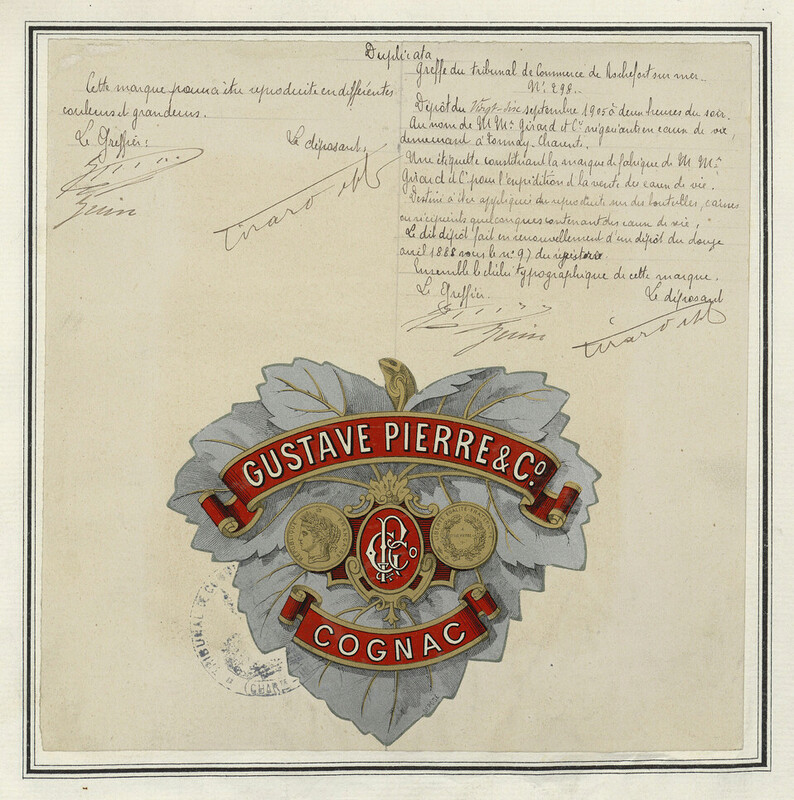 Duplicata
Cette marque pourra être reproduite en différentes
couleurs et grandeurs.
Le Greffier:
Le déposant,
Greffe du tribunal de Commerce de Rochefort sur mer.
N° 298.
Dépôt du Vingt-six septembre 1905 à deux heures du soir.
Au nom de M Mrs Girard et Cie négociants en eaux de vie,
demeurant à Tonnay-Charente.
Une étiquette constituant la marque de fabrique de M Mrs
Girard et Cie pour l'expédition et la vente des eaux de vie.
Destiné à être appliquée ou reproduite sur des bouteilles, caisses
ou récipients quelconques contenant des eaux de vie,
Le dit dépôt fait en renouvellement d'un dépôt du douze
avril 1888 sous le n° 97 du registre.
Ensemble le cliché typographique de cette marque.
Le Greffier.
Le déposant
GUSTAVE PIERRE & Co.
COGNAC
TRIBUNAL DE